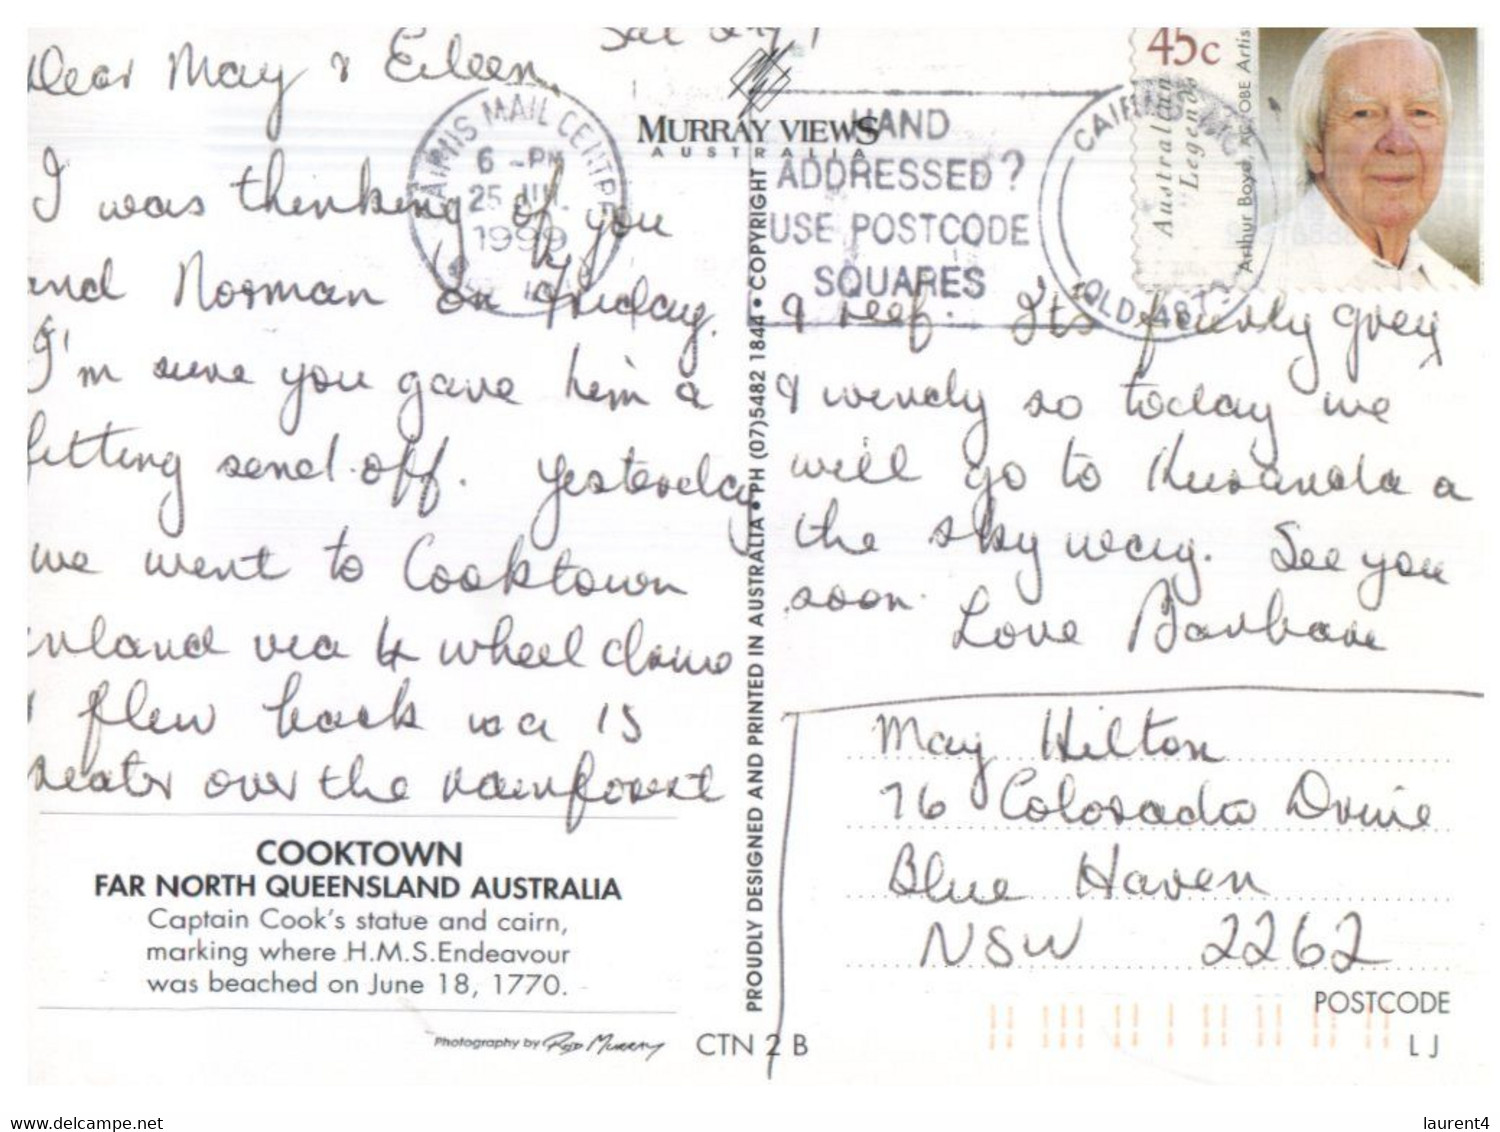 Dear May & Eileen,
I was thinking of you
and Norman on Friday.
I'm sure you gave him a
fitting send off. Yesterday
we went to Cooktown
inland via 4 wheel drive
& flew back via 15
seater over the rainforest
& reef. Its fairly grey
& windy so today we
will go to Kuranda &
the sky way. See you
soon.
Love Barbara
May Hilton
76 Colorado Drive
Blue Haven
NSW 2262
COOKTOWN
FAR NORTH QUEENSLAND AUSTRALIA
Captain Cook's statue and cairn,
marking where H.M.S.Endeavour
was beached on June 18, 1770.
Photography by Reid Murray
CTN 2 B
MURRAY VIEWS
AUSTRALIA
PROUDLY DESIGNED AND PRINTED IN AUSTRALIA • PH (07)5482 1844 • COPYRIGHT
CAIRNS MAIL CENTRE
6 -PM
25 JUL
1999
HAND
ADDRESSED?
USE POSTCODE
SQUARES
QLD. 487
45c
Australian
Legends
POSTCODE
L J
www.delcampe.net
laurent4